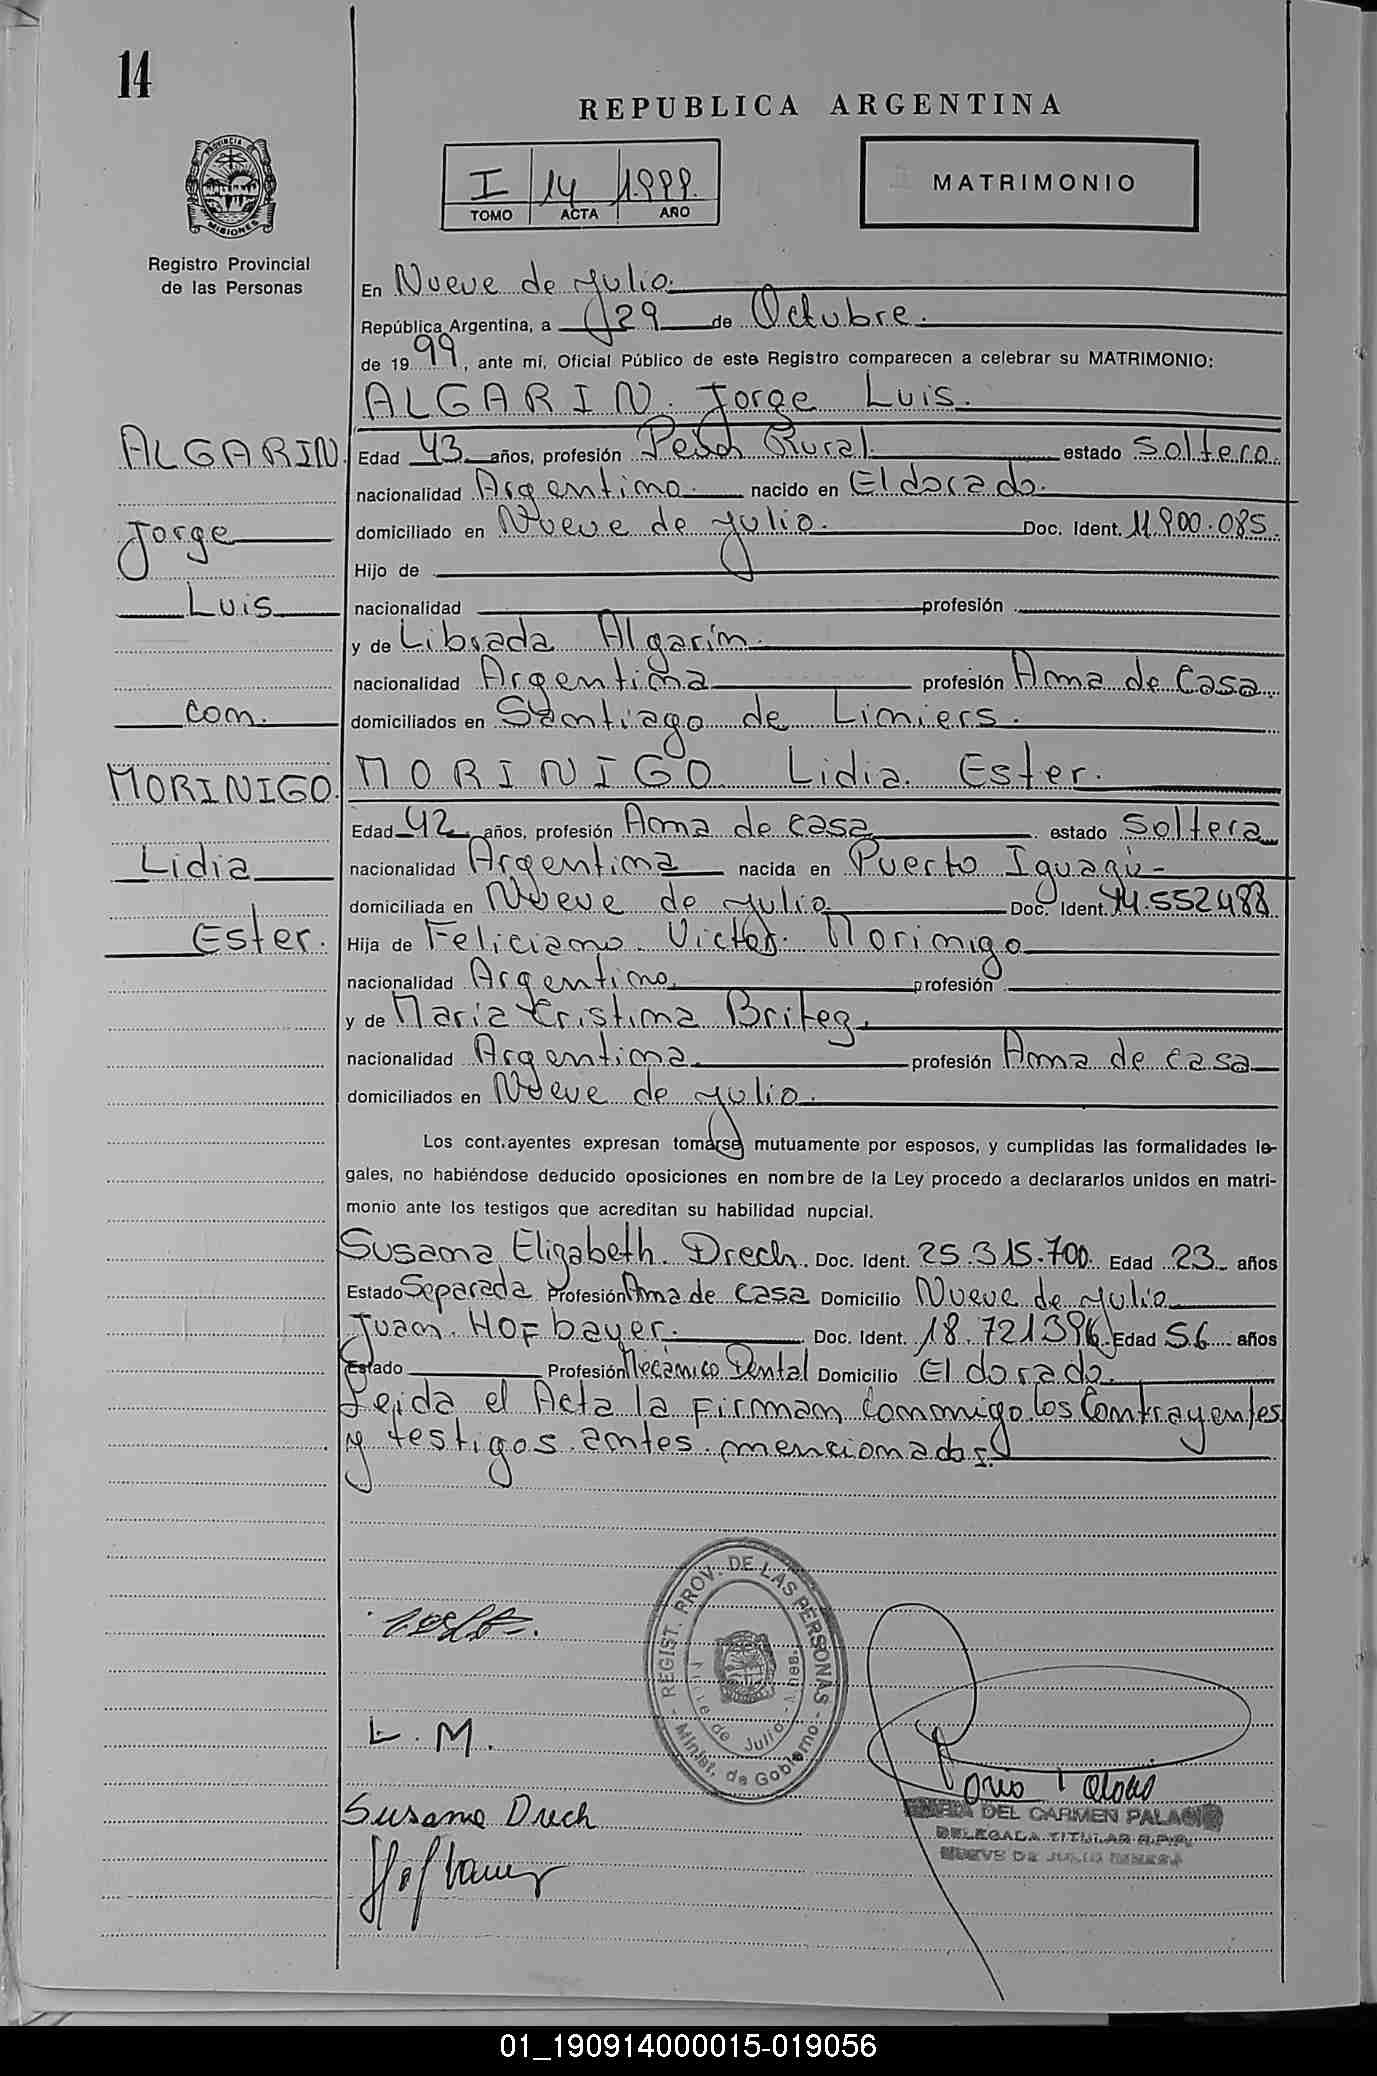 14
REPUBLICA ARGENTINA
PROVINCIA DE
MISIONES
I 14 1.999.
TOMO ACTA AÑO
MATRIMONIO
Registro Provincial
de las Personas
En Nueve de Julio.
República Argentina, a 29 de Octubre.
de 1999, ante mí, Oficial Público de este Registro comparecen a celebrar su MATRIMONIO:
ALGARIN. Jorge Luis.
ALGARIN.
Edad 43 años, profesión Peón Rural estado Soltero.
nacionalidad Argentino. nacido en Eldorado.
Jorge
domiciliado en Nueve de Julio. Doc. Ident. 11.900.085.
Hijo de
Luis
nacionalidad profesión
y de Librada Algarin.
nacionalidad Argentina profesión Ama de Casa.
con.
domiciliados en Santiago de Liniers.
MORINIGO. Lidia. Ester.
MORINIGO.
Edad 42 años, profesión Ama de casa estado Soltera
Lidia
nacionalidad Argentina nacida en Puerto Iguazú-
domiciliada en Nueve de Julio Doc. Ident. 14.552488
Ester.
Hija de Feliciano. Victor. Morinigo
nacionalidad Argentino. profesión
y de Maria Cristina Britez.
nacionalidad Argentina. profesión Ama de casa
domiciliados en Nueve de Julio.
Los cont.ayentes expresan tomarse mutuamente por esposos, y cumplidas las formalidades le-
gales, no habiéndose deducido oposiciones en nombre de la Ley procedo a declararlos unidos en matri-
monio ante los testigos que acreditan su habilidad nupcial.
Susana Elizabeth. Drech. Doc. Ident. 25.315.700. Edad 23 años
Estado Separada Profesión Ama de casa Domicilio Nueve de Julio
Juan. HOFbayer. Doc. Ident. 18.721396. Edad 56 años
Estado Profesión Mecánico Dental Domicilio Eldorado.
Leida el Acta la Firman Conmigo los Contrayentes
y testigos antes mencionados.
REGIST. PROV. DE LAS PERSONAS
Minist. de Gobierno
de Julio - Mnes.
L. M.
Susana Drech
Hofbauer
MARIA DEL CARMEN PALACIO
DELEGADA TITULAR R.P.P.
NUEVE DE JULIO
01_190914000015-019056